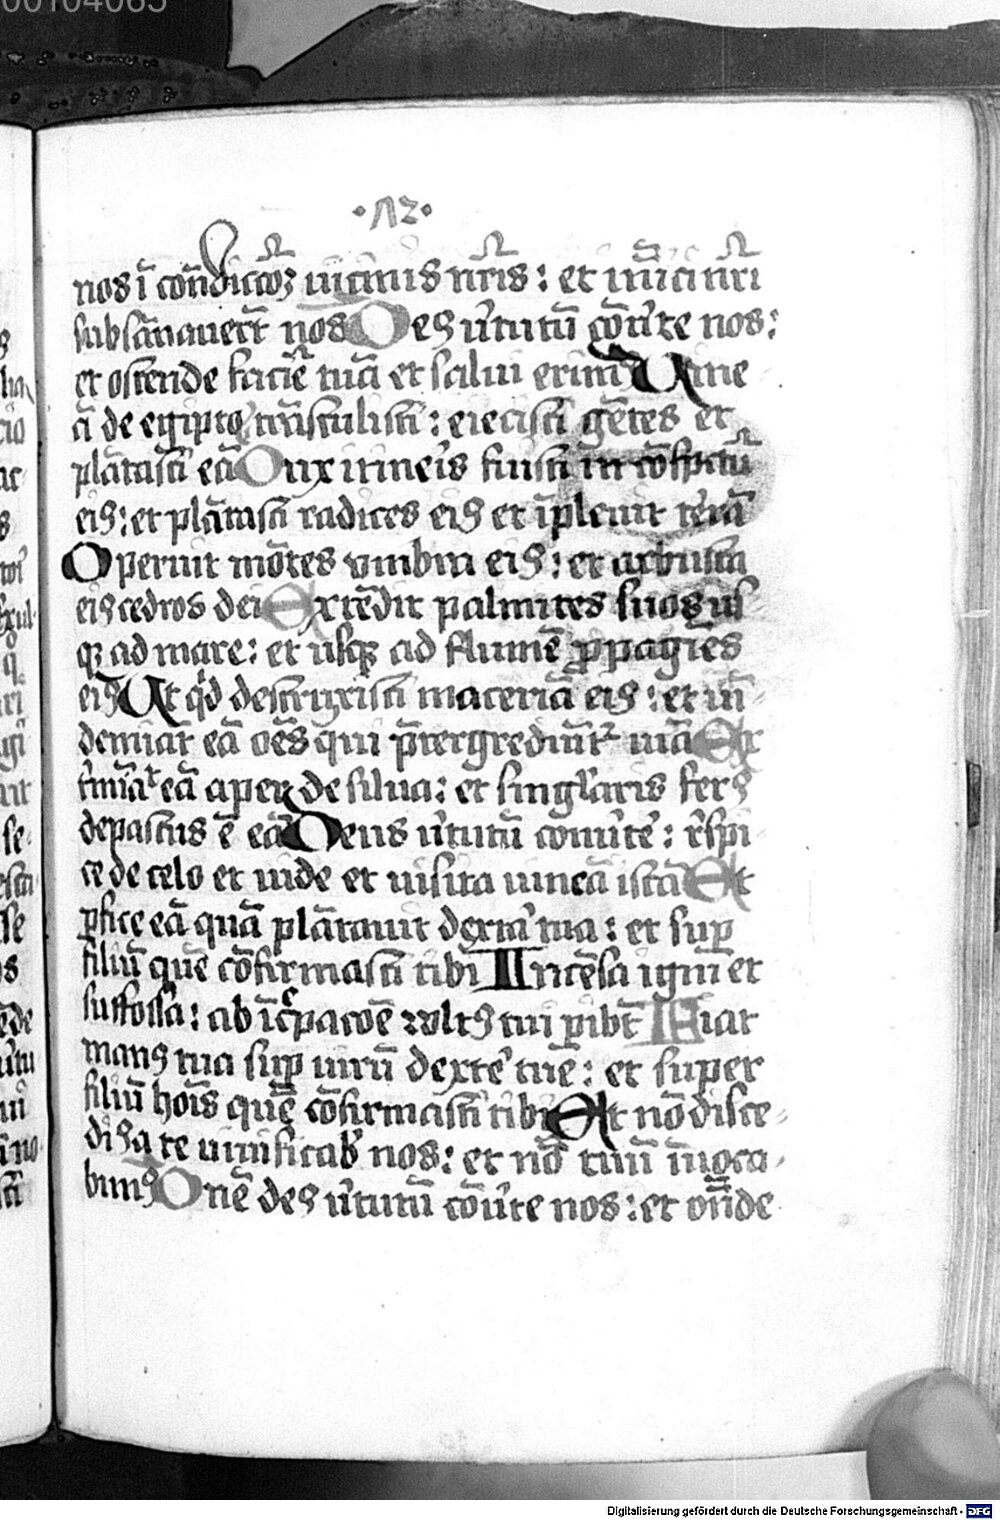 00104065
·Λ2·
nos ī cōn̄dictōꝫ uicinis nr̄is: et inīci nr̄i
subsānauer̄t nos Deꝰ u̓tutū cōu̓te nos:
et ostende faciē tuā et salui erimꝰ Uine
ā de egipto trāstulisti: eiecisti gētes et
plātasti eā Dux itineis fuisti in cōspctū
eiꝰ: et plātasti radices eiꝰ et īpleuit terā
Operuit mōtes vmbra eiꝰ: et arbusta
eiꝰ cedros dei Extēdit palmites suos us
qꝫ ad mare: et usqꝫ ad flumē ꝓpagīes
eiꝰ Ut qͥd destruxisti maceriā eiꝰ: et uī
demiāt eā oēs qui p̄tergrediūtꝛ uiā Ex
t̓mīaͭ eā aper de silua: et singl̓aris ferꝰ
depastus ē eā Deus u̓tutū cōuu̓te: r̓spi
ce de celo et uide et uisita uineā istā Et
ꝑfice eā quā plātauit dext̓a tua: et suꝑ
filiū quē cōfirmasti tibi Incēsa igni et
suffossa: ab īc̓pacōe vultꝰ tui ꝑibt̄ Fiat
manꝰ tua suꝑ uirū dext̓e tue: et super
filiū hoīs quē cōfirmasti tibi Et nō disce
diꝰ a te uiuificab̓ nos: et nō tuū īuoca
bimꝰ Dn̄e deꝰ u̓tutū cōu̓te nos: et on̄de
Digitalisierung gefördert durch die Deutsche Forschungsgemeinschaft - DFG